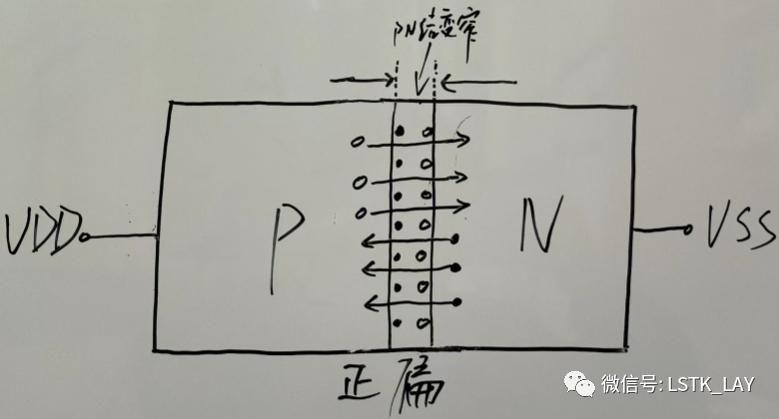 PN结变窄
VDD
P
N
VSS
正偏
微信号: LSTK_LAY